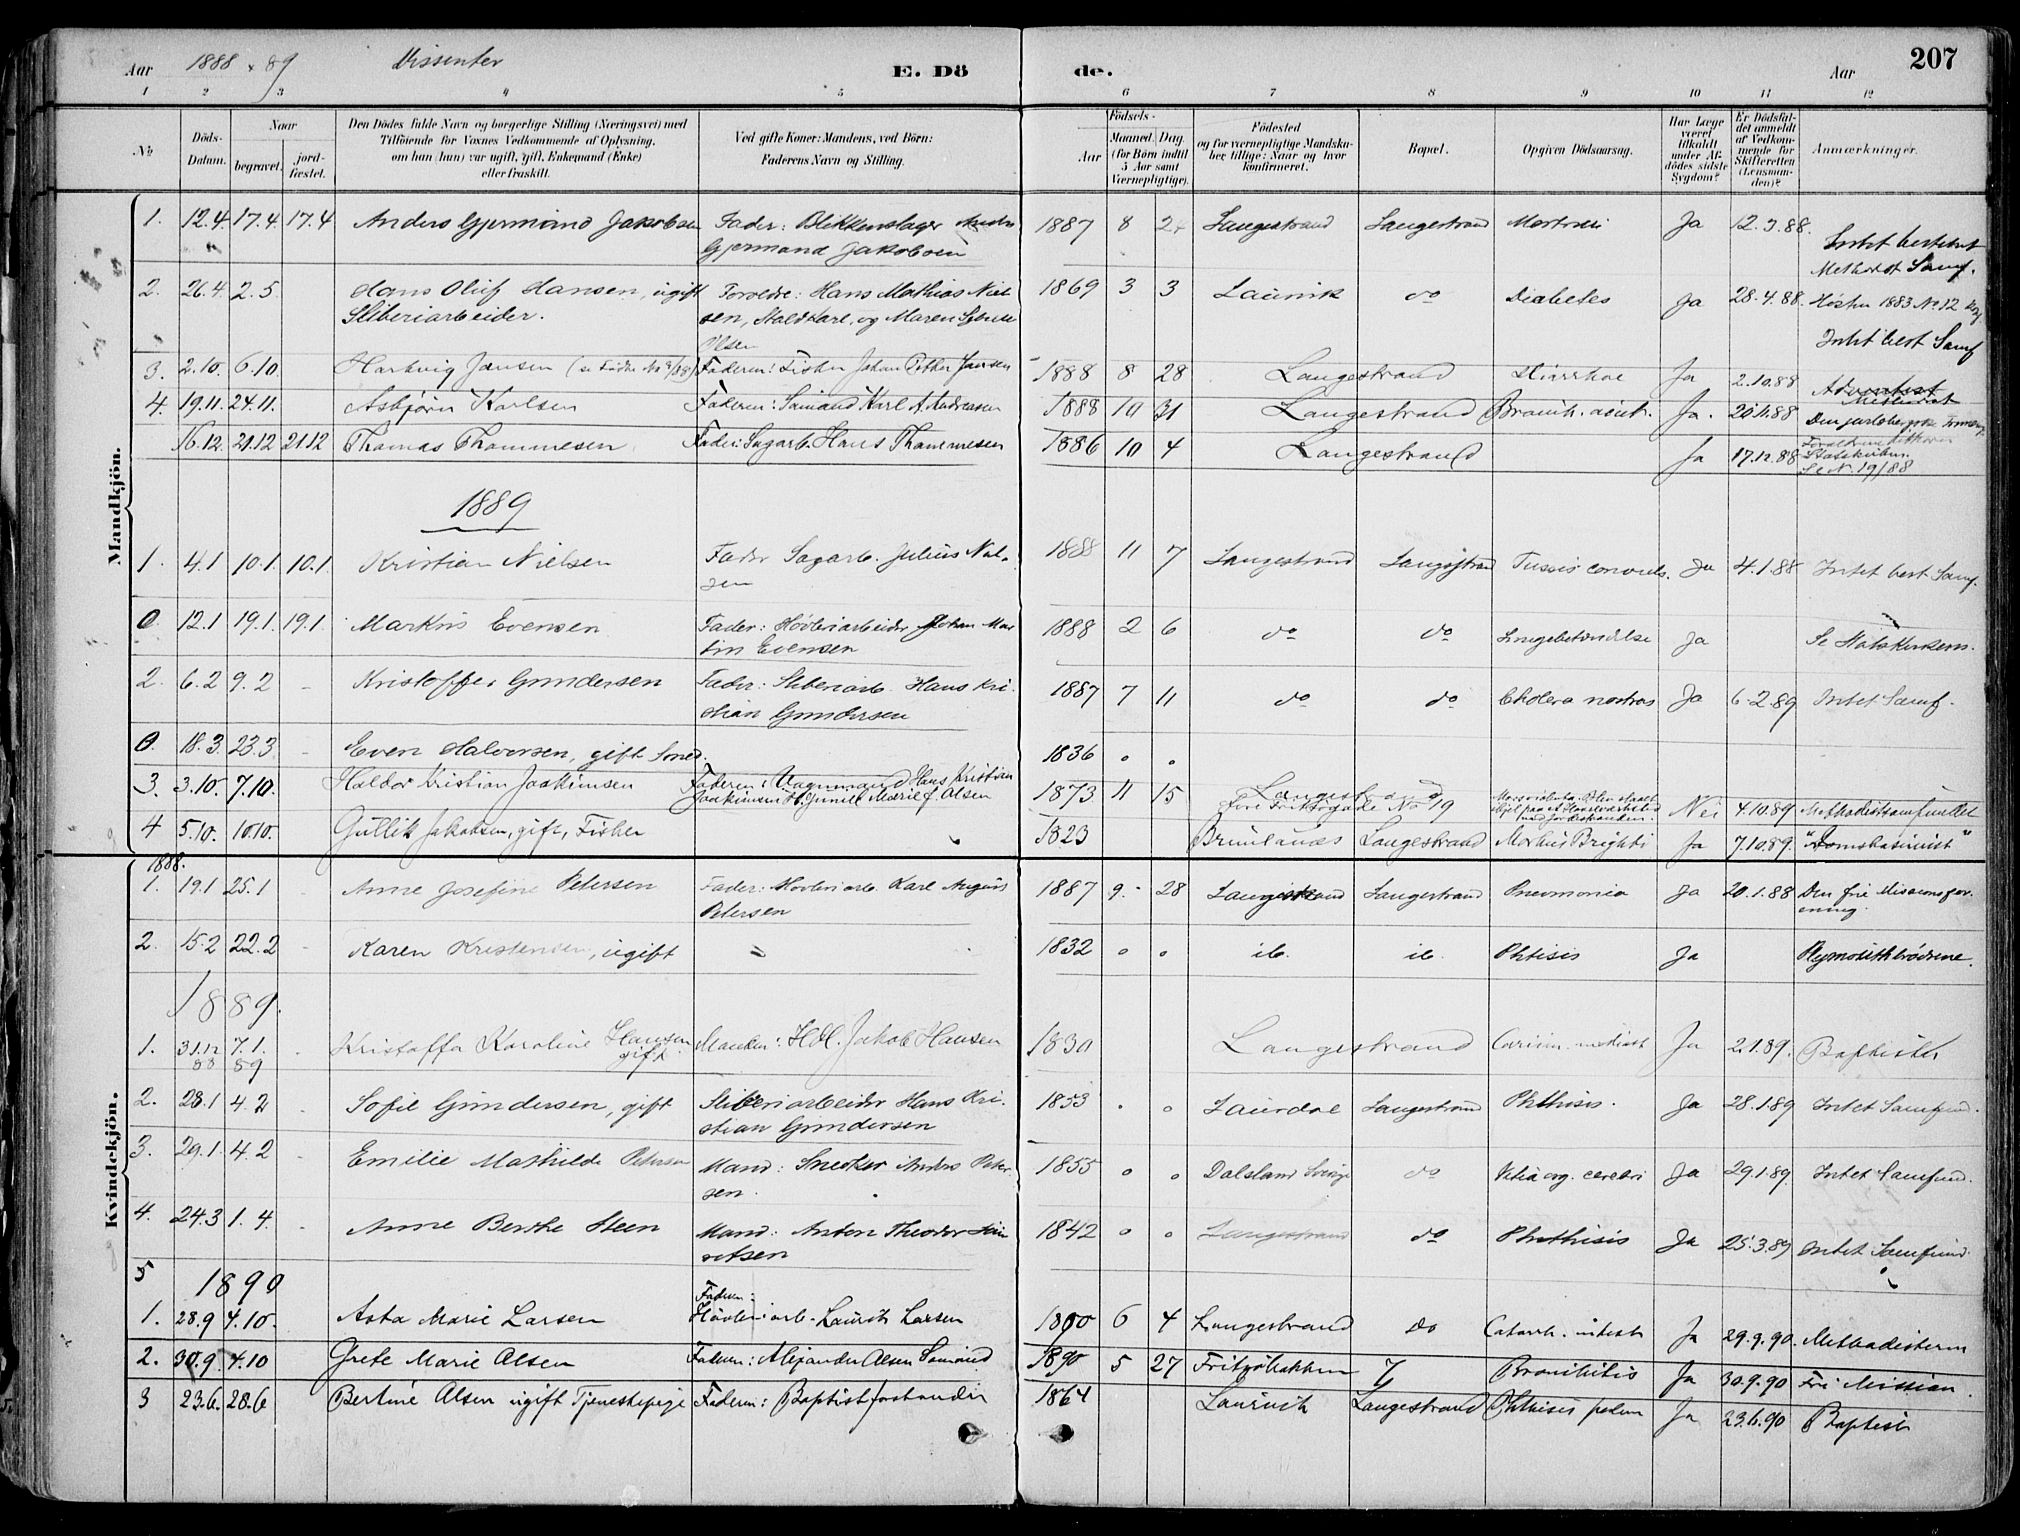 Aar 1888 & 89 Dissenter E. Döde. Aar 207
1 2 3 4 5 6 7 8 9 10 11 12
No
Döds-Datum.
Naar
begravet.
jordfæstet.
Den Dödes fulde Navn og borgerlige Stilling (Næringsvei) med
Tilföiende for Voxnes Vedkommende af Oplysning,
om han (hun) var ugift, gift, Enkemand (Enke)
eller fraskilt.
Ved gifte Koner: Mandens, ved Börn:
Faderens Navn og Stilling.
Födsels-
Aar
Maaned. Dag.
(for Börn indtil
5 Aar samt
Værnepligtige).
Födested
og for værnepligtige Mandska-
ber tillige: Naar og hvor
konfirmeret.
Bopæl.
Opgiven Dödsaarsag.
Har Læge
været
tilkaldt
under Af-
dödes sidste
Sygdom?
Er Dödsfal-
det anmeldt
af Vedkom-
mende for
Skifteretten
(Lensman-
den)?
Anmærkninger.
Mandkjön.
1. 12.4 17.4 17.4 Anders Gjermand Jakobsen Fader: Blikkenslager Anders 1887 8 24 Langestrand Langestrand Ja 12.3.88. Intet bestemt
Gjermand Jakobsen Methodist Samf.
2. 26.4 2.5 Hans Oluf Hansen, ugift Foreldre: Hans Mathias Niel- 1869 3 3 Laurvik do Diabetes Ja 28.4.88. Høsten 1883 No 12
Sliberiarbeider. sen, Staldkarl, og Maren
Olsen Intet best Samf
3. 2.10. 6.10. Hartvig Jansen Faderen: Fisker Johan Petter Jansen 1888 8 28 Langestrand Diarrhoe Ja 2.10.88
4. 19.11. 24.11. Asbjørn Karlsen Faderen: Sømand Karl A. Andreassen 1888 10 31 Langestrand Ja. 20.11.88
16.12. 21.12 21.12 Thomas Thommesen Fader: Sagarb. Hans Thommesen 1886 10 4 Langestrand Ja 17.12.88 Statskirken.
Se N. 19/88
1889
1. 4.1 10.1. 10.1. Kristian Nielsen Fader Sagarb. Julius Niel- 1888 11 7 Langestrand Langestrand Tussis convuls. Ja 4.1.88 Intet best Samf.
sen
0. 12.1 19.1. 19.1. Markus Evensen Fader: Høvleriarbeider Johan Mar- 1888 2 6 do do Lungebetændelse Ja Se Statskirken.
tin Evensen
2. 6.2 9.2 - Kristoffer Gundersen Fader: Sliberiarb. Hans Kri- 1887 7 11 do do Cholera nostras Ja 6.2.89 Intet Samf.
stian Gundersen
0. 18.3. 23.3 - Even Halvorsen, gift Smed. 1836
3. 3.10. 7.10. Haldor Kristian Joakimsen Faderen: Vognmand Hans Kristian 1873 11 15 Langestrand Nei 4.10.89 Methodistsamfundet
Joakimsen Marie f. Olsen Fritzøgade No 19
4 5.10. 10.10. Gullik Jakobsen, gift, Fisker 1823 Brunlanæs Langestrand Morbus Brighti Ja 7.10.89.
Kvindekjön.
1888.
1. 19.1 25.1 - Anne Josefine Petersen Fader: Høvleriarb. Karl August 1887 9. 28 Langestrand Langestrand Pneumonia Ja 20.1.88 Den frie Missionsfor-
Petersen ening.
2. 15.2 22.2 - Karen Kristensen, ugift 1832 ib. ib. Phtisis Ja Plymouthbrødrene.
1889.
1. 31.12 7.1. - Kristoffa Karoline Hansen Manden: Jakob Hansen 1830 Langestrand Ja 2.1.89. Baptister
88 89 gift
2. 28.1 4.2 - Sofie Gundersen, gift Sliberiarbeider Hans Kri- 1853 Laurdal Langestrand Phthisis. Ja 28.1.89 Intet Samfund.
stian Gundersen
3. 29.1. 4.2 - Emilie Mathilde Petersen Mand: Snedker Anders Peter- 1855 Dalsland Sverige do Vitia org. cerebri Ja 29.1.89. Intet Samfund.
sen.
4. 24.3 1.4. - Anne Berthe Steen Mand: Anton Theodor 1842 Langestrand do Phthisis Ja 25.3.89 Intet Samfund.
5 1890
Faderen:
1. 28.9 4.10. Asta Marie Larsen Høvleriarb. Laurits Larsen 1890 6 4 Langestrand do Catarrh. intest. Ja 29.9.90. Methodisterne
2. 30.9. 4.10 Grete Marie Olsen Faderen: Alexander Olsen Sømand 1890 5 27 Fritzøbakken Bronchitis Ja 30.9.90 Fri Mission.
3 23.6. 28.6 Bertine Olsen ugift Tjenestepige Faderen: Baptistforstander 1864 Laurvik Langestrand Phthisis pulm Ja 23.6.90 Baptist